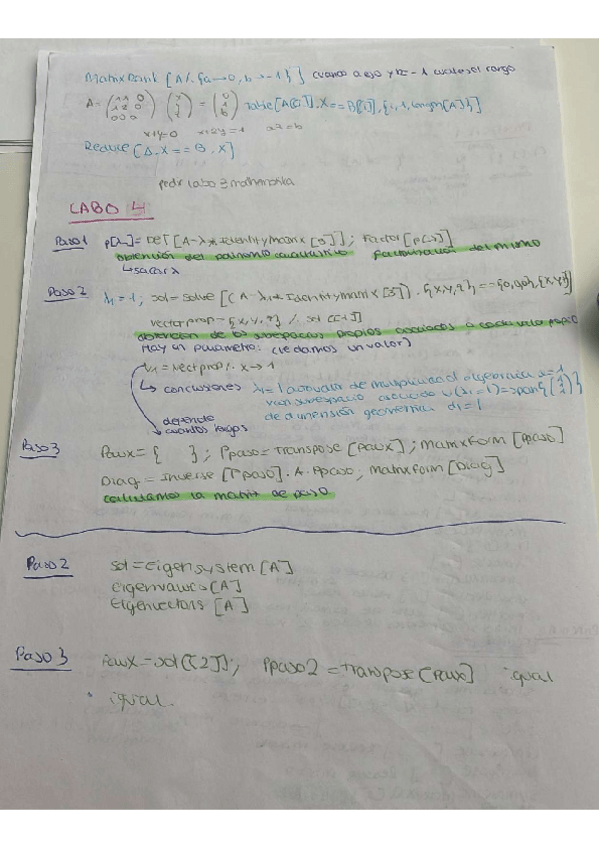 MatrixRank [A/. {a→0, b→-1}] cuando a es 0 y b = -1 cuale es el rango
A = (1 1 0 / 1 2 0 / 0 0 a) (x / y / z) = (0 / 1 / b) Table[A[[i]].X==B[[i]],{i,1,Length[A]}]
x+y=0 x+2y=1 az=b
Reduce [A.X == B, X]
pedir Labo 3 mathematika
LABO 4
Paso 1 p[λ_]= Det [A-λ*IdentityMatrix [3]]; Factor[p[λ]]
obtención del polinomio característico factorización del mismo
↳ sacar λ
Paso 2 λ1 = 1; sol=Solve [(A-λ1*IdentityMatrix [3]).{x,y,z}=={0,0,0},{x,y,z}]
vectprop={x,y,z} /. sol[[1]]
obtención de los subespacios propios asociados a cada valor propio
Hay un parámetro: (le damos un valor)
v1 = vectprop/. x→1
↳ conclusiones λ=1 autovalor de multiplicidad algebraica α=1
y un subespacio asociado v(λ1=1)=span{ }
de dimensión geométrica d1=1
depende
cuantos tengas
Paso 3 Paux= { }; Ppaso=Transpose [Paux]; MatrixForm [Ppaso]
Diag = Inverse [Ppaso].A.Ppaso; MatrixForm [Diag]
calculamos la matriz de paso
Paso 2 sol=Eigensystem [A]
Eigenvalues [A]
Eigenvectors [A]
Paso 3 Paux=sol[[2]]; Ppaso2 =Transpose [Paux] igual
igual.